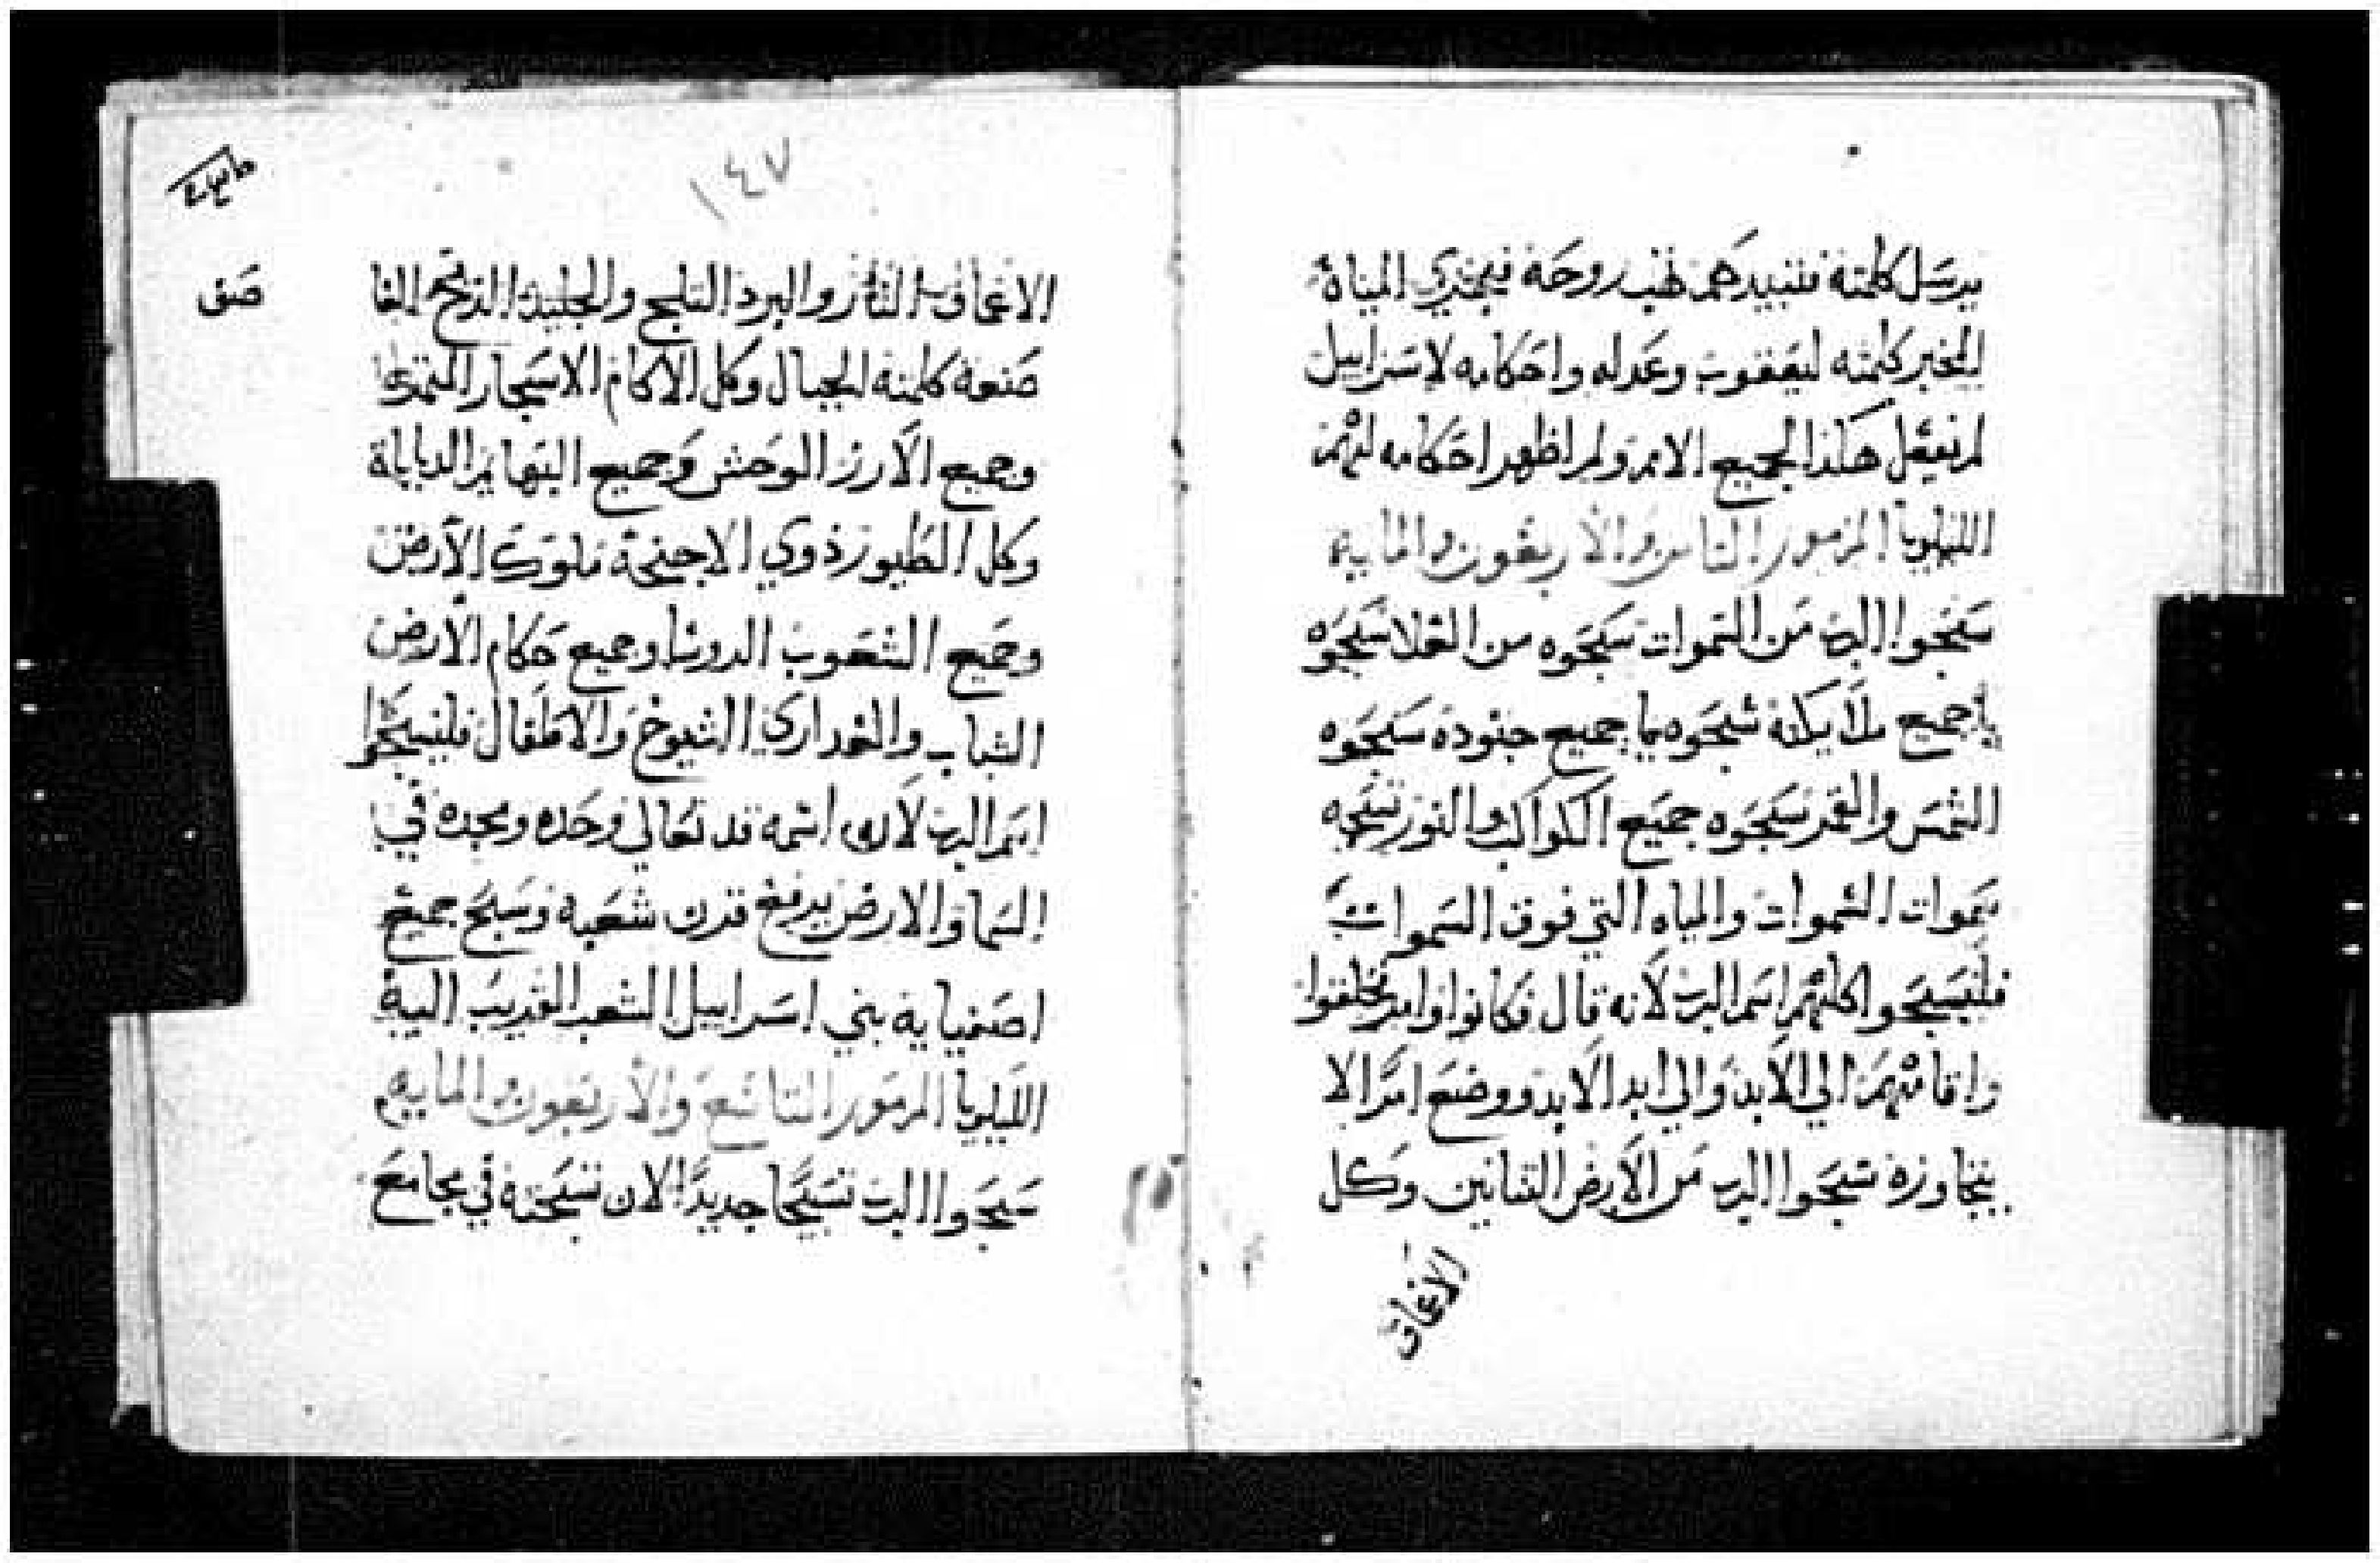 يرسل كلمته فتبيدهم تهب روحه فيجري المياه
المخبر كلمته ليعقوب وعدله واحكامه لاسراييل
لم يفعل هكذا لجميع الامم ولم اظهر احكامه لهم
الليلويا المزمور الثامن والاربعون والمايه
سبحوا الرب من السموات سبحوه من العلا سبحوه
يا جميع ملايكته سبحوه يا جميع جنوده سبحوه
الشمس والقمر سبحوه جميع الكواكب والنور تسبحه
سموات السموات والمياه التي فوق السموات
فليسبحوا كلهم اسم الرب لانه قال فكانوا وامر فخلقوا
واقامهم الي الابد والي ابد الابد ووضع امرا لا
يتجاوزه سبحوا الرب من الارض التنانين وكل
الاعماق
١٤٧
صف
الاعماق النار والبرد الثلج والجليد الريح
صنعة كلمته الجبال وكل الاكام الاشجار المثمره
وجميع الارز الوحش وجميع البهايم الدبابة
وكل الطيور ذوي الاجنحة ملوك الارض
وجميع الشعوب الروسا وجميع حكام الارض
الشباب والعداري الشيوخ والاطفال فليسبحوا
اسم الرب لان اسمه قد تعالي وحده ومجده في
السما والارض يرفع قرن شعبه وسبح جميع
اصفيايه بني اسراييل الشعب القريب اليه
الليلويا المزمور التاسع والاربعون والمايه
سبحوا الرب تسبيحا جديدا الان تسبحته في مجامع